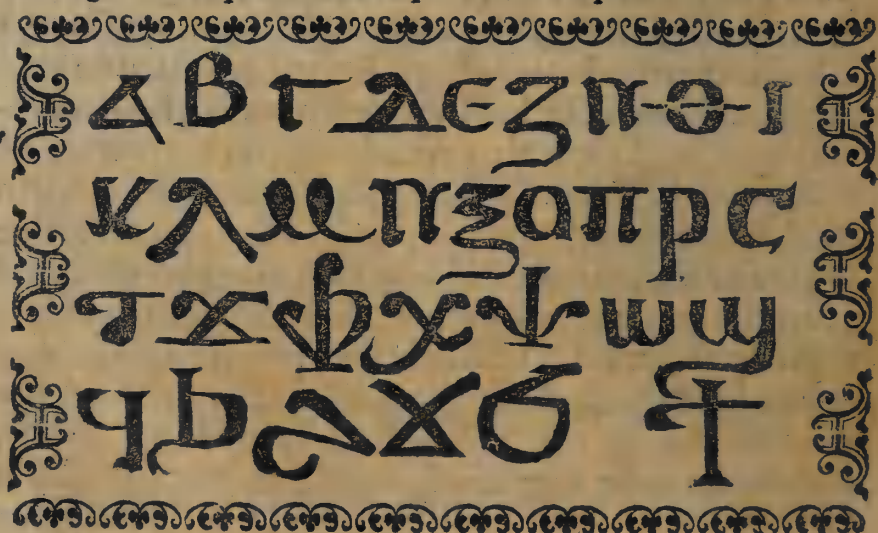 ⲁ ⲃ ⲅ ⲇ ⲉ ⲍ ⲏ ⲑ ⲓ
ⲕ ⲗ ⲙ ⲛ ⲝ ⲟ ⲡ ⲣ ⲥ
ⲧ ⲩ ⲫ ⲭ ⲯ ⲱ ϣ
ϥ ϧ ϩ ϫ ϭ ϯ